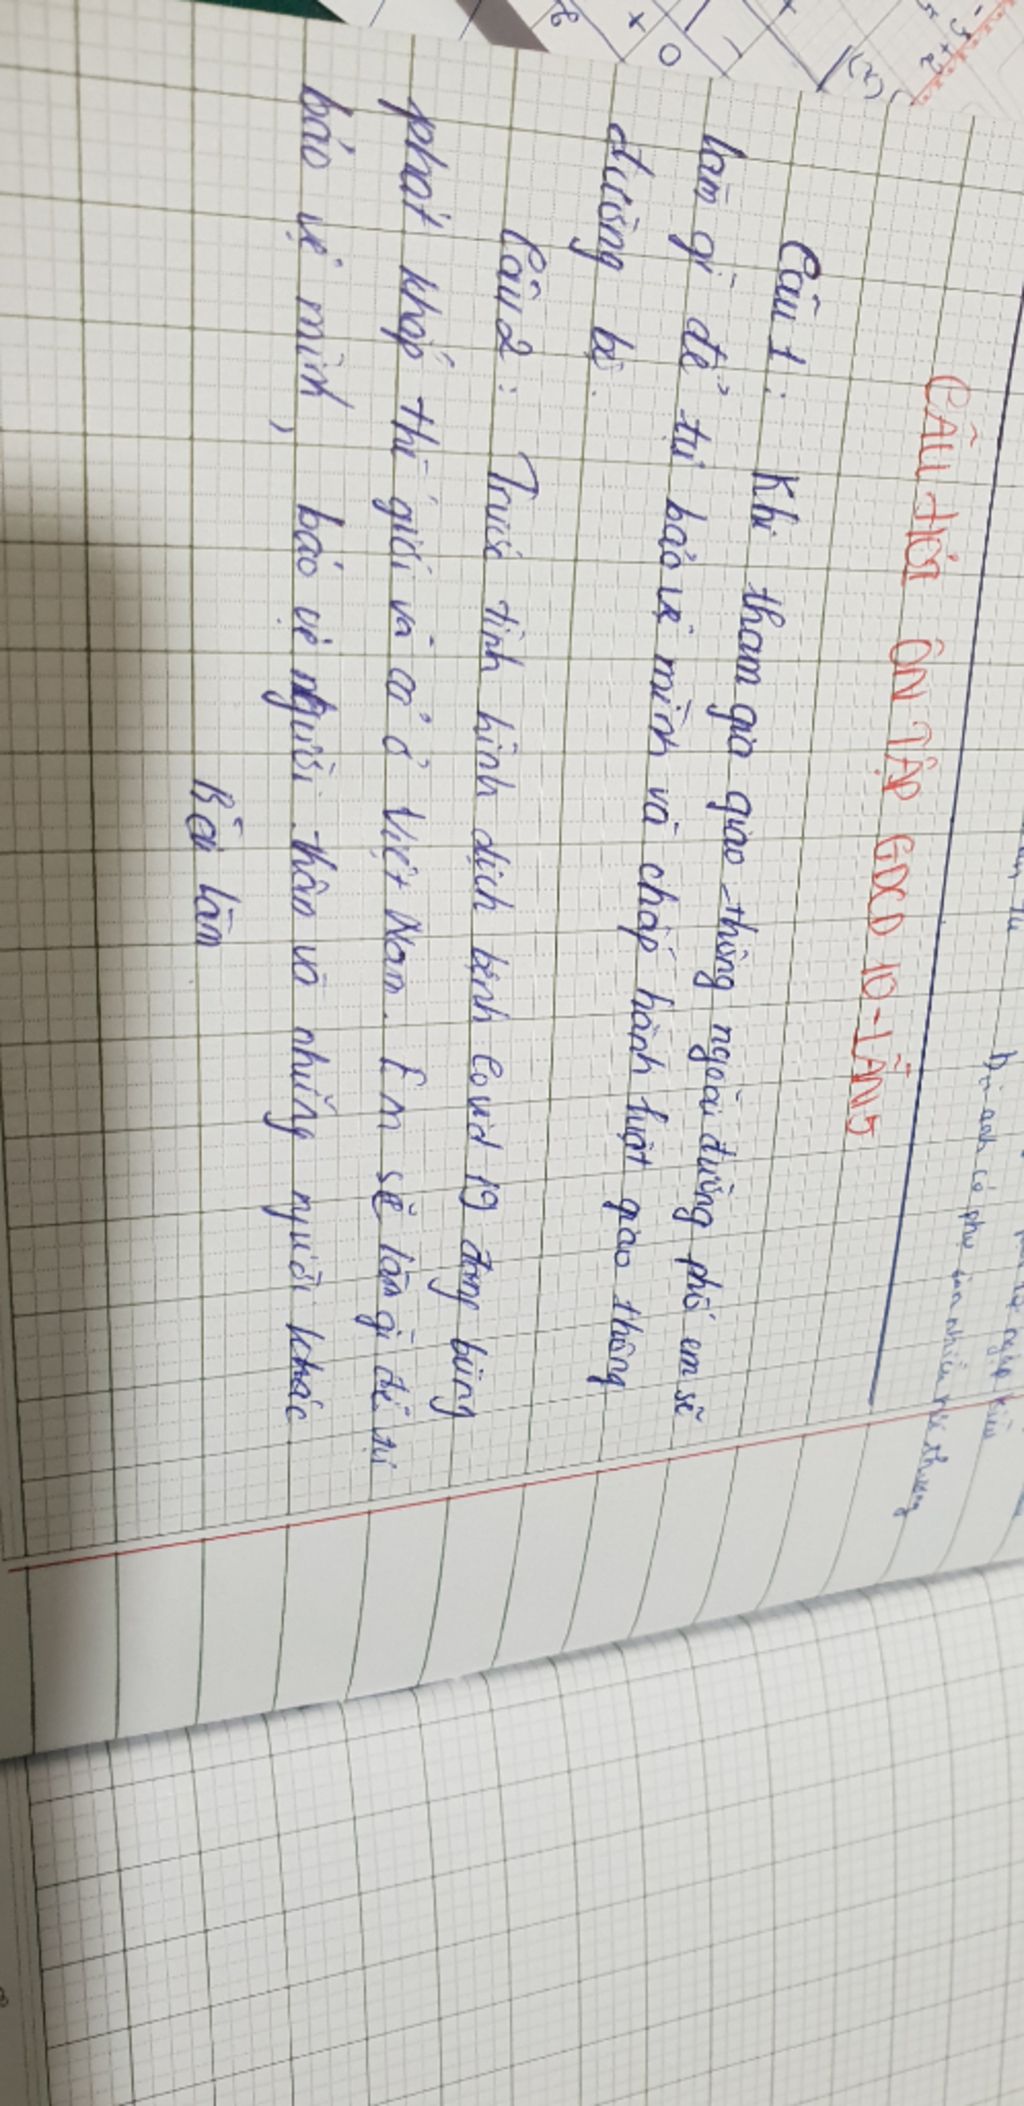 CÂU HỎI ÔN TẬP GDCD 10-LẦN 5
Câu 1: Khi tham gia giao thông ngoài đường phố em sẽ
làm gì để tự bảo vệ mình và chấp hành luật giao thông
đường bộ.
Câu 2: Trước tình hình dịch bệnh Covid 19 đang bùng
phát khắp thế giới và cả ở Việt Nam. Em sẽ làm gì để tự
bảo vệ mình, bảo vệ người thân và những người khác
Bài làm